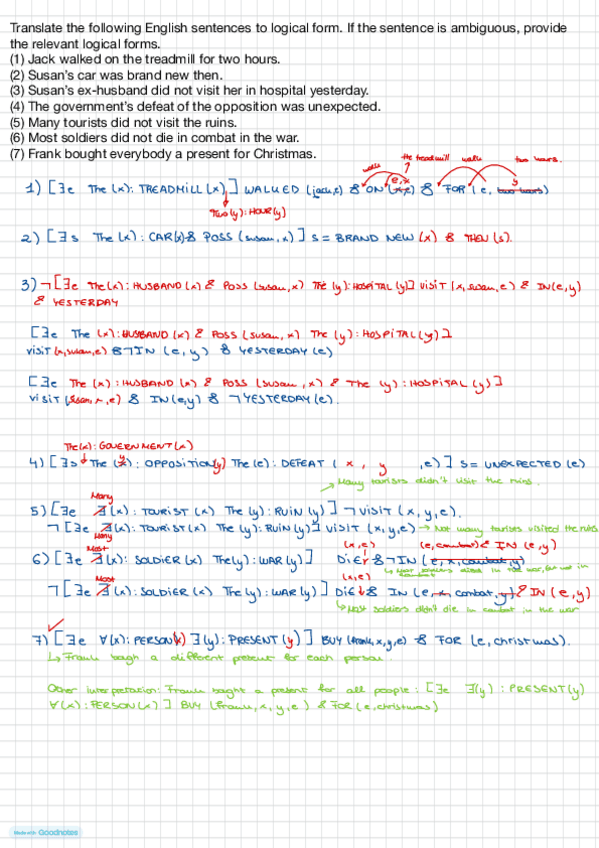 Translate the following English sentences to logical form. If the sentence is ambiguous, provide
the relevant logical forms.
(1) Jack walked on the treadmill for two hours.
(2) Susan's car was brand new then.
(3) Susan's ex-husband did not visit her in hospital yesterday.
(4) The government's defeat of the opposition was unexpected.
(5) Many tourists did not visit the ruins.
(6) Most soldiers did not die in combat in the war.
(7) Frank bought everybody a present for Christmas.
walk the treadmill walk two hours.
1) [∃e The (x): TREADMILL (x)] WALKED (jack, e) & ON (e, x) & FOR (e, two hours) y
Two(y): HOUR(y)
2) [∃s The (x): CAR(x) & POSS (susan, x)] s = BRAND NEW (x) & THEN (s).
3) ¬[∃e The(x): HUSBAND (x) & POSS (susan, x) The (y): HOSPITAL (y)] VISIT (x, susan, e) & IN(e, y)
& YESTERDAY
[∃e The (x): HUSBAND (x) & POSS (susan, x) The (y): HOSPITAL (y)]
VISIT (x, susan, e) & ¬IN (e, y) & YESTERDAY (e)
[∃e The (x): HUSBAND (x) & POSS (susan, x) & The (y): HOSPITAL (y)]
VISIT (susan, x, e) & IN(e, y) & ¬YESTERDAY (e).
The(x): GOVERNMENT(x)
4) [∃s The (y): OPPOSITION(y) The (e): DEFEAT (x, y, e)] s = UNEXPECTED (e)
Many tourists didn't visit the ruins.
Many
5) [∃e ∃(x): TOURIST (x) The (y): RUIN (y)] ¬VISIT (x, y, e).
¬[∃e ∃(x): TOURIST (x) The (y): RUIN (y)] VISIT (x, y, e) → Not many tourists visited the ruins
Many (x, e) (e, combat) & IN (e, y)
Most
6) [∃e ∃(x): SOLDIER (x) The(y): WAR (y)] DIE & ¬IN (e, x, combat, y)
Most soldiers died in the war, but not in combat
Most (x, e)
¬[∃e ∃(x): SOLDIER (x) The (y): WAR (y)] DIE & IN (e, x, combat, y) & IN (e, y)
Most soldiers didn't die in combat in the war
7) [∃e ∀(x): PERSON(x) ∃(y): PRESENT (y)] BUY (frank, x, y, e) & FOR (e, christmas).
↳ Frank bough a different present for each person.
Other interpretation: Frank bought a present for all people: [∃e ∃(y): PRESENT(y)
∀(x): PERSON(x)] BUY (frank, x, y, e) & FOR (e, christmas)
Made with Goodnotes